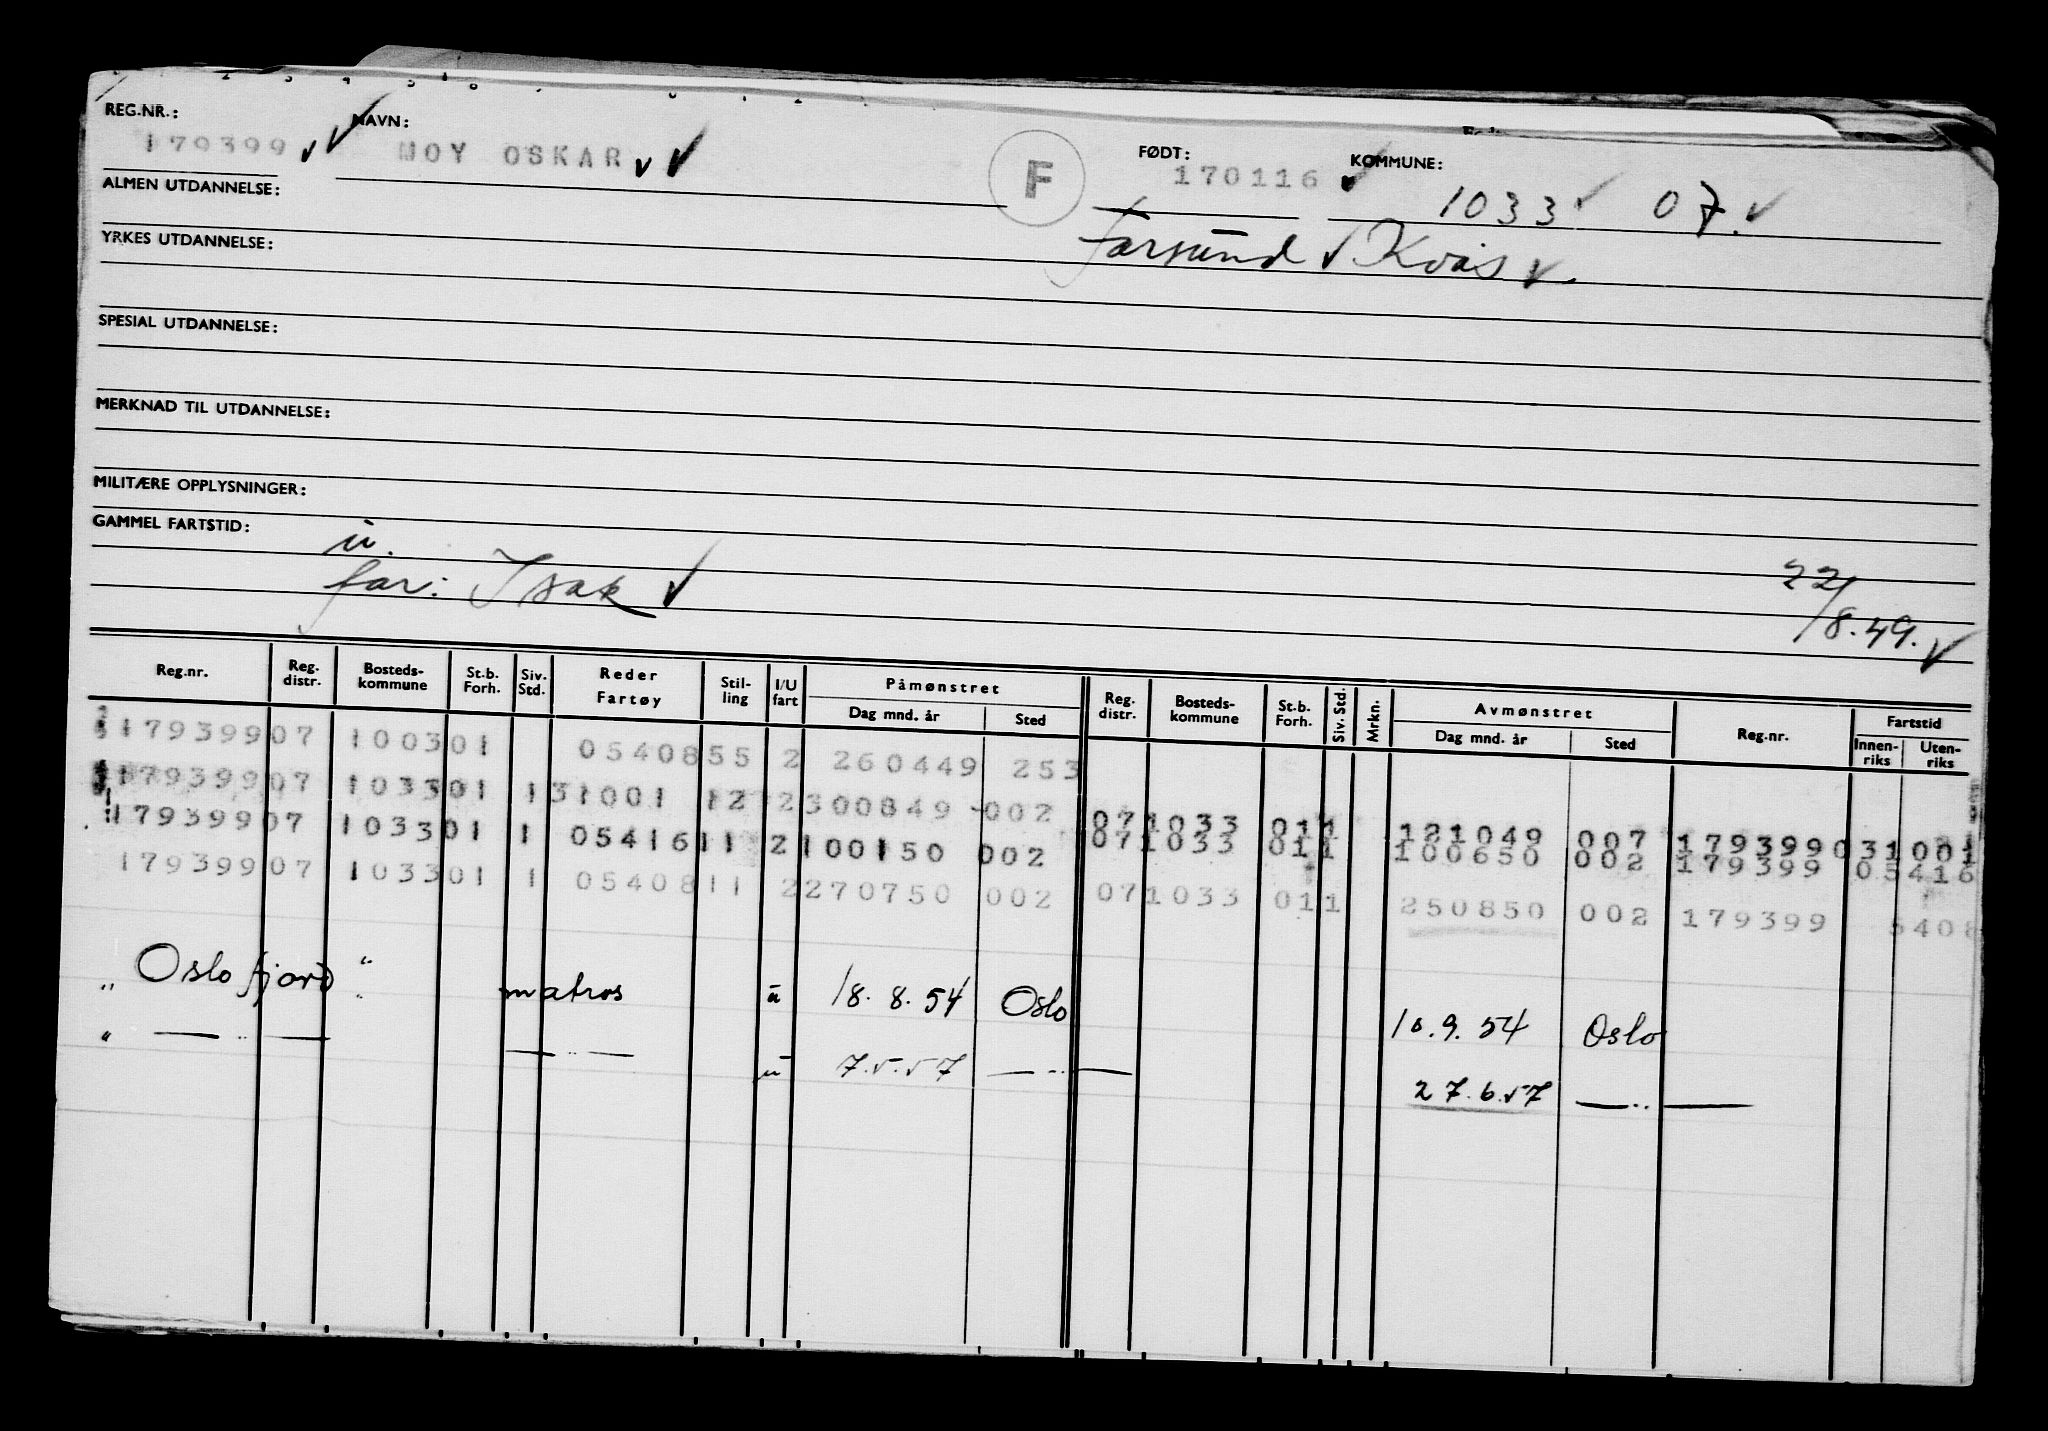 REG.NR.: NAVN: FØDT: KOMMUNE:
179399 MOY OSKAR F 170116 1033 07.
ALMEN UTDANNELSE:
Farsund Kvås
YRKES UTDANNELSE:
SPESIAL UTDANNELSE:
MERKNAD TIL UTDANNELSE:
MILITÆRE OPPLYSNINGER:
GAMMEL FARTSTID:
u.
far: Isak
22/8.49.
Reg.nr. Reg. distr. Bosteds-kommune St.b. Forh. Siv. Std. Reder Fartøy Stil-ling I/U fart Påmønstret Dag mnd. år Sted Reg. distr. Bosteds-kommune St.b. Forh. Siv. Std. Mrkn. Avmønstret Dag mnd. år Sted Reg.nr. Fartstid Innen-riks Uten-riks
17939907 100301 0540855 2 260449 253
17939907 103301 131001 12 2300849 002 071033 011 121049 007 1793990 31001
17939907 103301 1 0541611 2100150 002 071033 011 100650 002 179399 05416
17939907 103301 1 0540811 2270750 002 071033 011 250850 002 179399 5408
" Oslofjord " matros u 18.8.54 Oslo 10.9.54 Oslo
" — " — — " — u 7.5.57 — " — 27.6.57 — " —